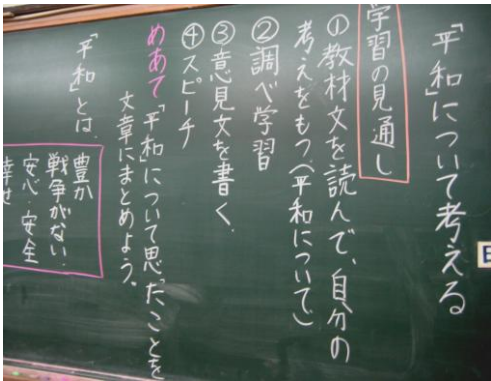 「平和」について考える
学習の見通し
①教材文を読んで、自分の
考えをもつ(平和について)
②調べ学習
③意見文を書く。
④スピーチ
めあて「平和」について思ったことを
文章にまとめよう。
「平和」とは、
豊か
戦争がない
安心・安全
幸せ